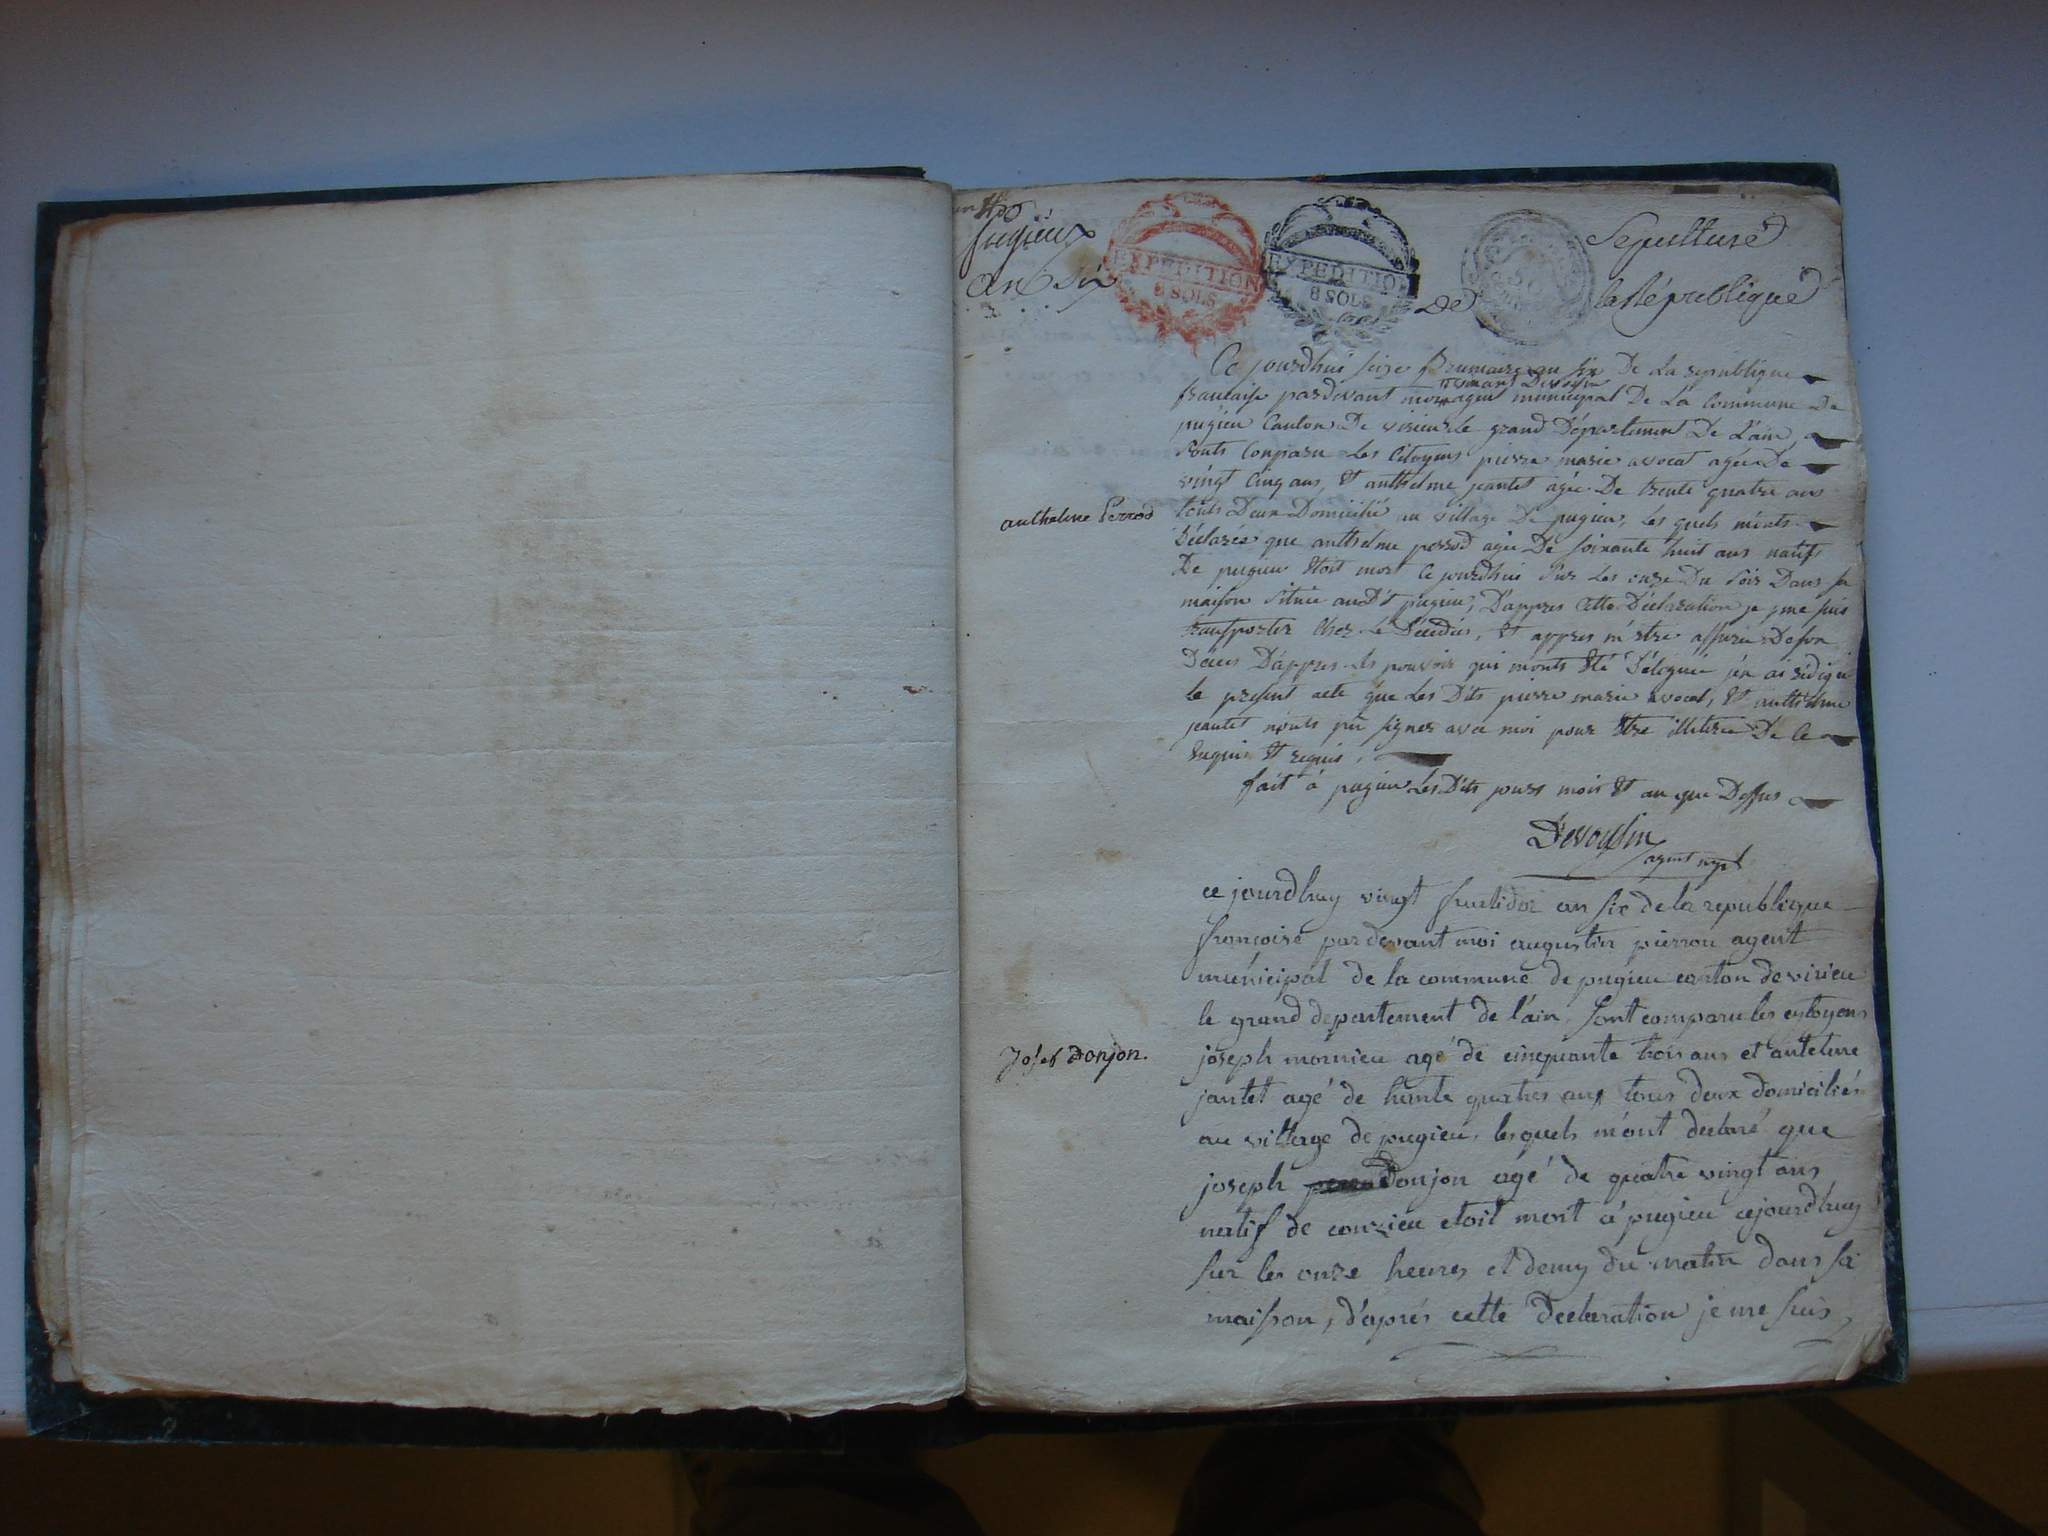 pugieux
Sepulture
an six
EXPEDITION
8 SOLS
EXPEDITION
8 SOLS
de
la République
Ce jourdhui seize Brumaire an six De La republique
nomant Devoisin
francaise pardevant moi agent municipal De La Commune De
pugieu Canton De virieux le grand Département De L'ain,
Sonts Comparu Les Citoyens pierre marie avocat agée De
vingt Cinq ans, Et anthelme jeantet agée De trente quatre ans
anthelme Perrod
touts Deux Domicilié au village De pugieu, Les quels m'onts
Déclarée que anthelme perrod agée De soixante huit ans natif
De pugieu Etoit mort Ce jourdhui sur Les onze Du soir Dans sa
maison située au D't pugieu, D'appres Cette Déclaration je me suis
transporter Chez Le Décédée, Et appres m'etre assurée De son
Déces D'appres Les pouvoir qui m'onts Eté Déléguée j'en ai rédigé
le present acte que Les Dits pierre marie avocat, Et anthelme
jeantet n'onts pû signer avec moi pour Etre illiterée De Ce
Enquis Et requis,
fait à pugieu Les Dits jours mois Et an que Dessus
Devoisin
agent mpl
ce jourdhuy vingt fructidor an six de la republique
francoise par devant moi augustin pierron agent
municipal de la commune de pugieu canton de virieu
le grand departement de l'ain. sont comparu les cytoyens
Josef Donjon.
joseph mornieu agé de cinquante trois ans et antelme
jantet agé de trente quatres ans tous deux domiciliés
au village de pugieu, lesquels m'ont declaré que
joseph Donjon agé de quatre vingt ans
natif de conzieu etoit mort a pugieu cejourdhuy
sur les onze heures et demy du matin dans sa
maison, d'aprés cette declaration je me suis